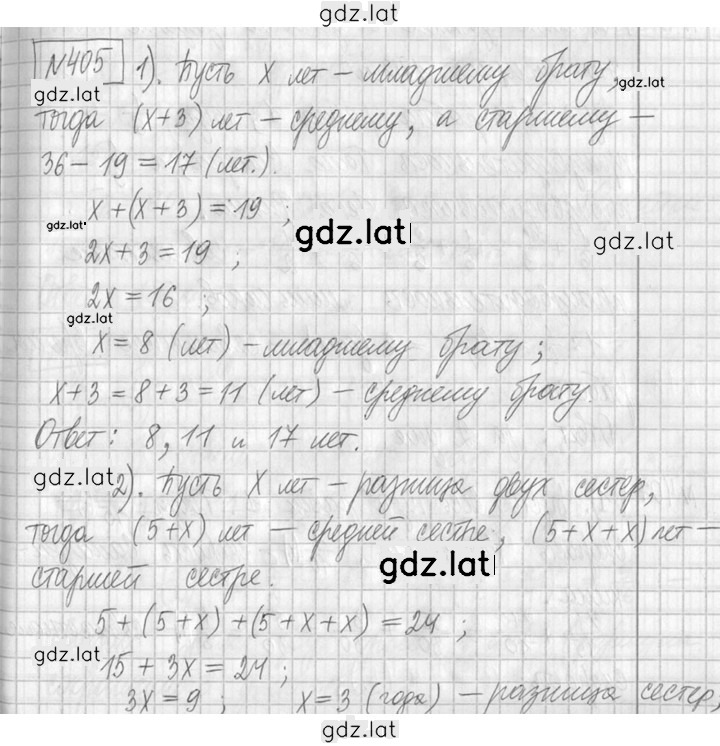 gdz.lat
№405 1). Пусть x лет – младшему брату,
gdz.lat gdz.lat
тогда (x+3) лет – среднему, а старшему –
36 – 19 = 17 (лет.).
x + (x + 3) = 19 ;
gdz.lat gdz.lat gdz.lat
2x + 3 = 19 ;
2x = 16 ;
gdz.lat
x = 8 (лет) – младшему брату ;
x + 3 = 8 + 3 = 11 (лет) – среднему брату.
Ответ: 8, 11 и 17 лет.
gdz.lat 2). Пусть x лет – разница двух сестер,
тогда (5+x) лет – средней сестре, (5+x+x) лет –
старшей сестре.
gdz.lat
5 + (5 + x) + (5 + x + x) = 24 ;
gdz.lat 15 + 3x = 24 ;
3x = 9 ; x = 3 (года) – разница сестер,
gdz.lat